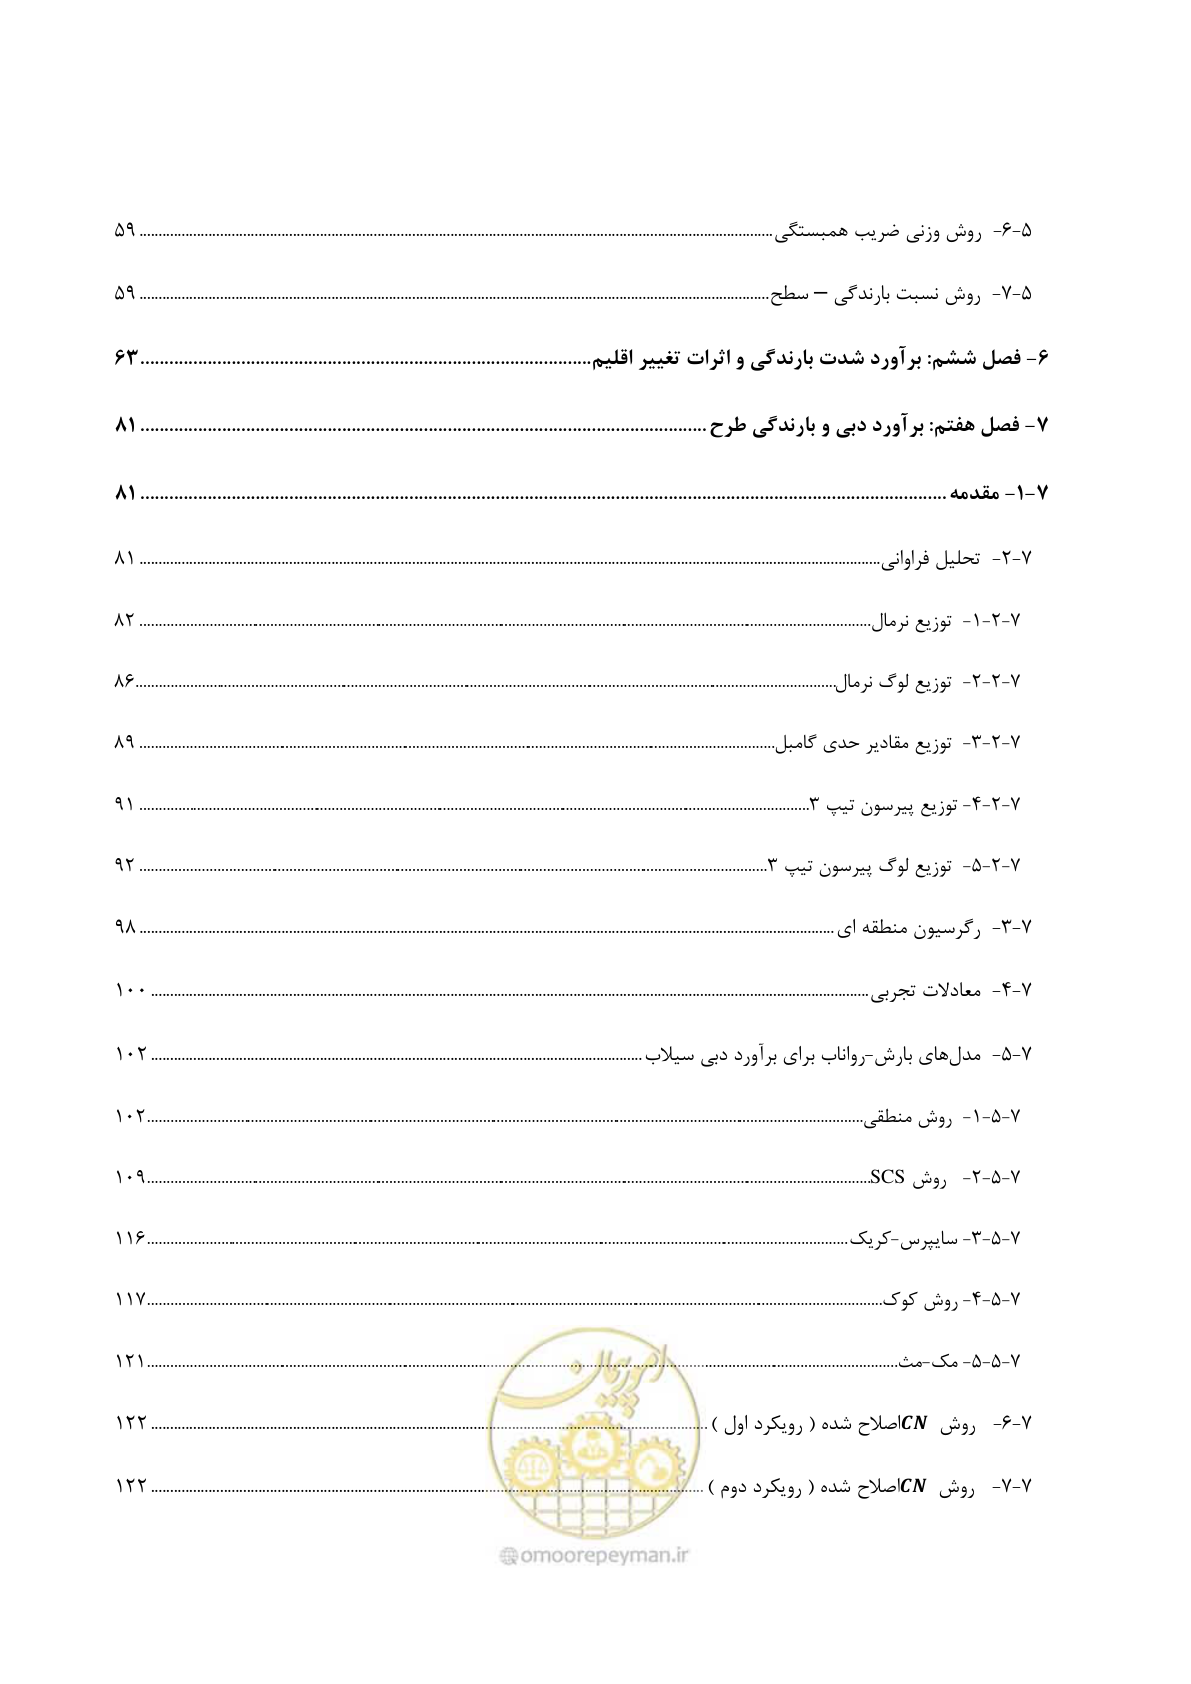 ۵-۶- روش وزنی ضریب همبستگی ۵۹
۵-۷- روش نسبت بارندگی – سطح ۵۹
۶- فصل ششم: برآورد شدت بارندگی و اثرات تغییر اقلیم ۶۳
۷- فصل هفتم: برآورد دبی و بارندگی طرح ۸۱
۷-۱- مقدمه ۸۱
۷-۲- تحلیل فراوانی ۸۱
۷-۲-۱- توزیع نرمال ۸۲
۷-۲-۲- توزیع لوگ نرمال ۸۶
۷-۲-۳- توزیع مقادیر حدی گامبل ۸۹
۷-۲-۴- توزیع پیرسون تیپ ۳ ۹۱
۷-۲-۵- توزیع لوگ پیرسون تیپ ۳ ۹۲
۷-۳- رگرسیون منطقه ای ۹۸
۷-۴- معادلات تجربی ۱۰۰
۷-۵- مدل‌های بارش-رواناب برای برآورد دبی سیلاب ۱۰۲
۷-۵-۱- روش منطقی ۱۰۲
۷-۵-۲- روش SCS ۱۰۹
۷-۵-۳- سایپرس-کریک ۱۱۶
۷-۵-۴- روش کوک ۱۱۷
۷-۵-۵- مک-مث ۱۲۱
امور پیمان
۷-۶- روش CN اصلاح شده ( رویکرد اول ) ۱۲۲
۷-۷- روش CN اصلاح شده ( رویکرد دوم ) ۱۲۲
omoorepeyman.ir